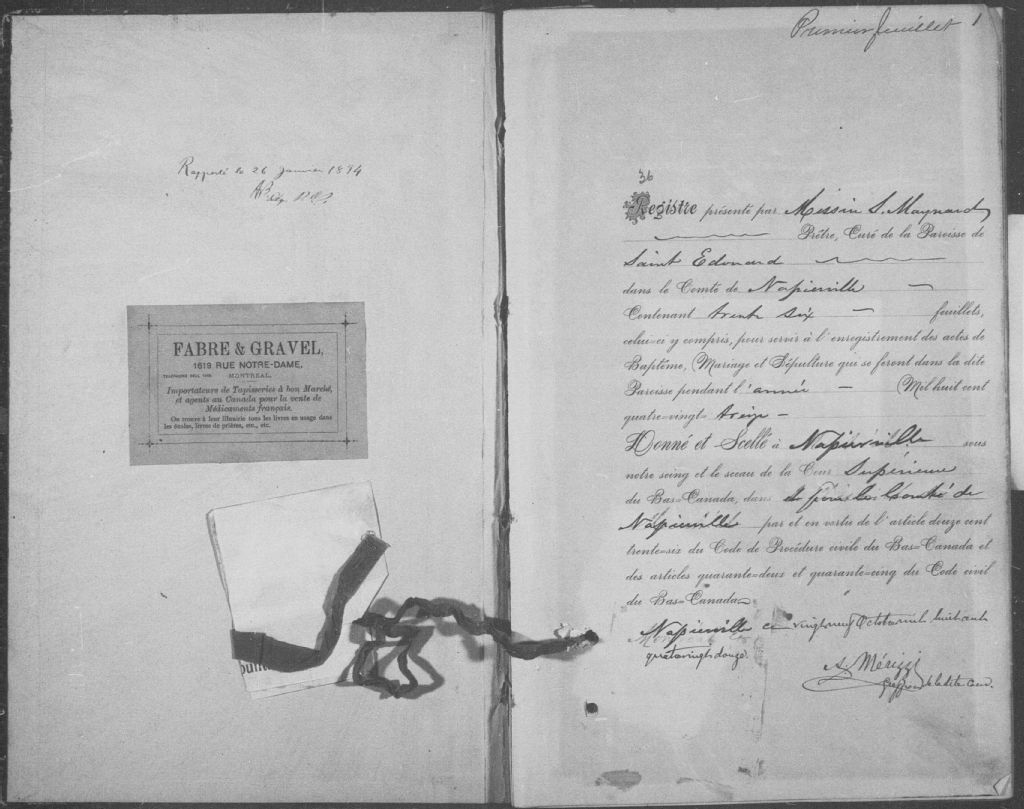 Rapporté le 26 Janvier 1894
FABRE & GRAVEL,
1619 RUE NOTRE-DAME,
MONTREAL.
Importateurs de Tapisseries à bon Marché,
et agents au Canada pour la vente de
Médicaments français.
On trouve à leur librairie tous les livres en usage dans
les écoles, livres de prières, etc., etc.
Premier feuillet 1
36
Registre présenté par Messire S. Maynard
Prêtre, Curé de la Paroisse de
Saint Edouard
dans le Comté de Napierville
Contenant trente six feuillets,
celui-ci y compris, pour servir à l'enregistrement des actes de
Baptême, Mariage et Sépulture qui se feront dans la dite
Paroisse pendant l'année Mil huit cent
quatre-vingt treize
Donné et Scellé à Napierville sous
notre seing et le sceau de la Cour Supérieure
du Bas-Canada, dans et pour le Comté de
Napierville par et en vertu de l'article douze cent
trente-six du Code de Procédure civile du Bas-Canada et
des articles quarante-deux et quarante-cinq du Code civil
du Bas-Canada
Napierville ce vingt neuf Octobre mil huit cent
quatre vingt douze
A. Mérizzi
Greffier de la dite Cour.